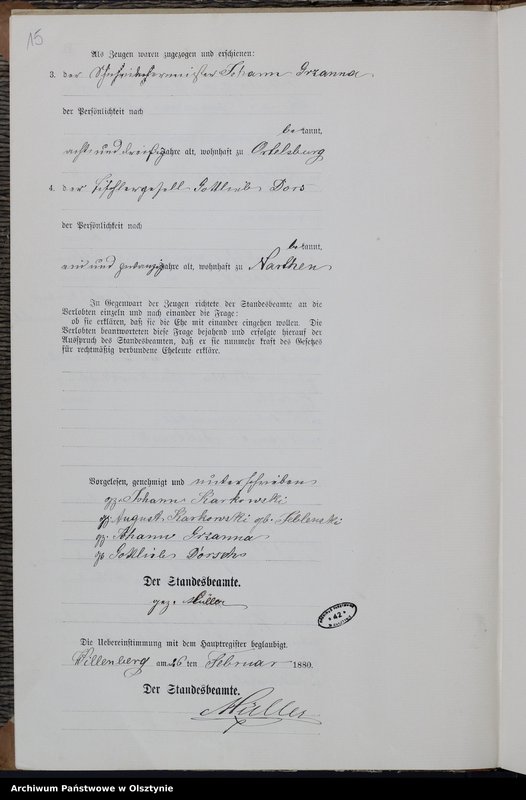 15
Als Zeugen waren zugezogen und erschienen:
3. der Schuhmachermeister Johann Grzanna
der Persönlichkeit nach
be kannt,
acht und dreißig Jahre alt, wohnhaft zu Ortelsburg
4. der Tischlergesell Gottlieb Dors
der Persönlichkeit nach
be kannt,
und zwanzig Jahre alt, wohnhaft zu Narthen
In Gegenwart der Zeugen richtete der Standesbeamte an die
Verlobten einzeln und nach einander die Frage:
ob sie erklären, daß sie die Ehe mit einander eingehen wollen. Die
Verlobten beantworteten diese Frage bejahend und erfolgte hierauf der
Ausspruch des Standesbeamten, daß er sie nunmehr kraft des Gesetzes
für rechtmäßig verbundene Eheleute erkläre.
Vorgelesen, genehmigt und unterschrieben
gz. Johann Karkowski
gz. August Karkowski gb.
gz. Johann Grzanna
gz. Gottlieb Dorsch
Der Standesbeamte.
gez. Müller
42
Die Uebereinstimmung mit dem Hauptregister beglaubigt.
Willenberg am 26 ten Februar 1880.
Der Standesbeamte.
Müller
Archiwum Państwowe w Olsztynie